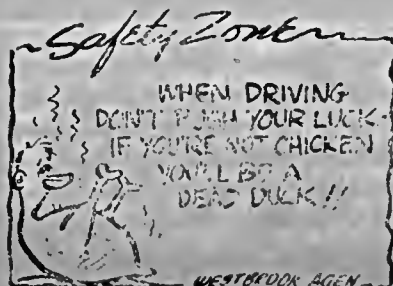 Safety Zone
WHEN DRIVING
DON'T PUSH YOUR LUCK-
IF YOU'RE NOT CHICKEN
YOU'LL BE A
DEAD DUCK!!
WESTBROOK AGEN